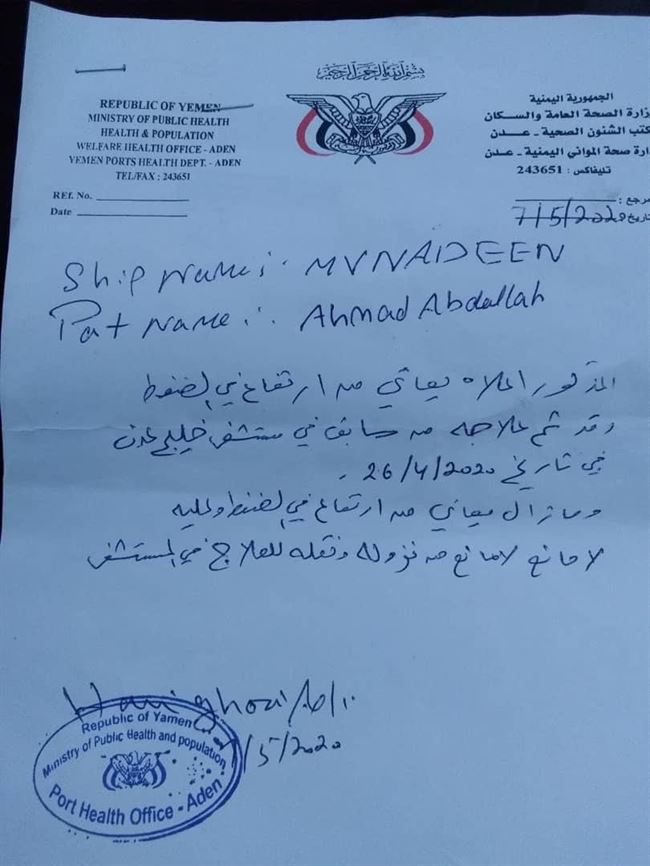 بسم الله الرحمن الرحيم
REPUBLIC OF YEMEN
MINISTRY OF PUBLIC HEALTH
HEALTH & POPULATION
WELFARE HEALTH OFFICE - ADEN
YEMEN PORTS HEALTH DEPT. - ADEN
TEL/FAX : 243651
REf. No.
Date
الجمهورية اليمنية
زارة الصحة العامة والسكان
كتب الشئون الصحية - عدن
ارة صحة الموانى اليمنية - عدن
تليفاكس : 243651
مرجع :
تاريخ 7/5/2020
Ship Name :- MV NADEEN
Pat Name :. Ahmad Abdallah
المذكور اعلاه يعاني من ارتفاع في الضغط
وقد تم علاجه من سابق في مستشفى خليج عدن
في تاريخ 26/4/2020 .
ومازال يعاني من ارتفاع في الضغط وعليه
لا مانع لا مانع من نزوله ونقله للعلاج في المستشفى
/5/2020
Republic of Yemen
Ministry of Public Health and population
Port Health Office - Aden